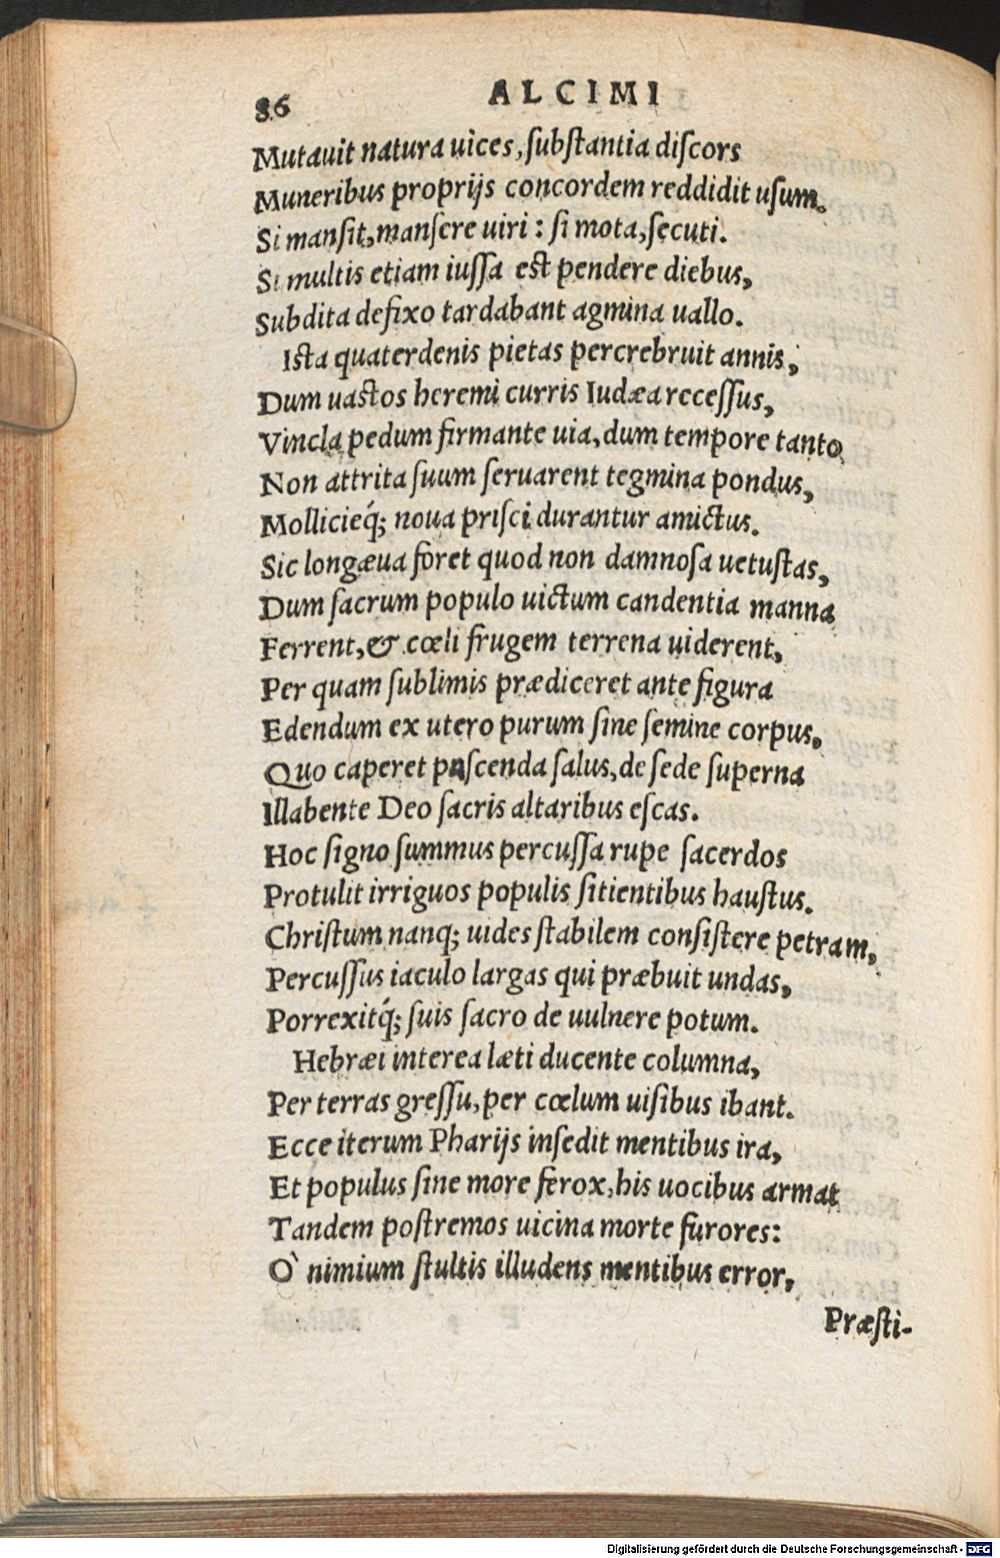 86 ALCIMI
Mutauit natura uices, ſubſtantia diſcors
Muneribus proprijs concordem reddidit uſum.
Si manſit, manſere uiri: ſi mota, ſecuti.
Si multis etiam iuſſa eſt pendere diebus,
Subdita defixo tardabant agmina uallo.
Iſta quaterdenis pietas percrebruit annis,
Dum uaſtos heremi curris Iudæa receſſus,
Vincla pedum firmante uia, dum tempore tanto
Non attrita ſuum ſeruarent tegmina pondus,
Mollicieq́; noua priſci durantur amictus.
Sic longæua foret quod non damnoſa uetuſtas,
Dum ſacrum populo uictum candentia manna
Ferrent, & cœli frugem terrena uiderent,
Per quam ſublimis prædiceret ante figura
Edendum ex utero purum ſine ſemine corpus,
Quo caperet paſcenda ſalus, de ſede ſuperna
Illabente Deo ſacris altaribus eſcas.
Hoc ſigno ſummus percuſſa rupe ſacerdos
Protulit irriguos populis ſitientibus hauſtus.
Chriſtum nanq; uides ſtabilem conſiſtere petram,
Percuſſus iaculo largas qui præbuit undas,
Porrexitq́; ſuis ſacro de uulnere potum.
Hebræi interea læti ducente columna,
Per terras greſſu, per cœlum uiſibus ibant.
Ecce iterum Pharijs inſedit mentibus ira,
Et populus ſine more ferox, his uocibus armat
Tandem poſtremos uicina morte furores:
Ò nimium ſtultis illudens mentibus error,
Præſti-
Digitalisierung gefördert durch die Deutsche Forschungsgemeinschaft - DFG